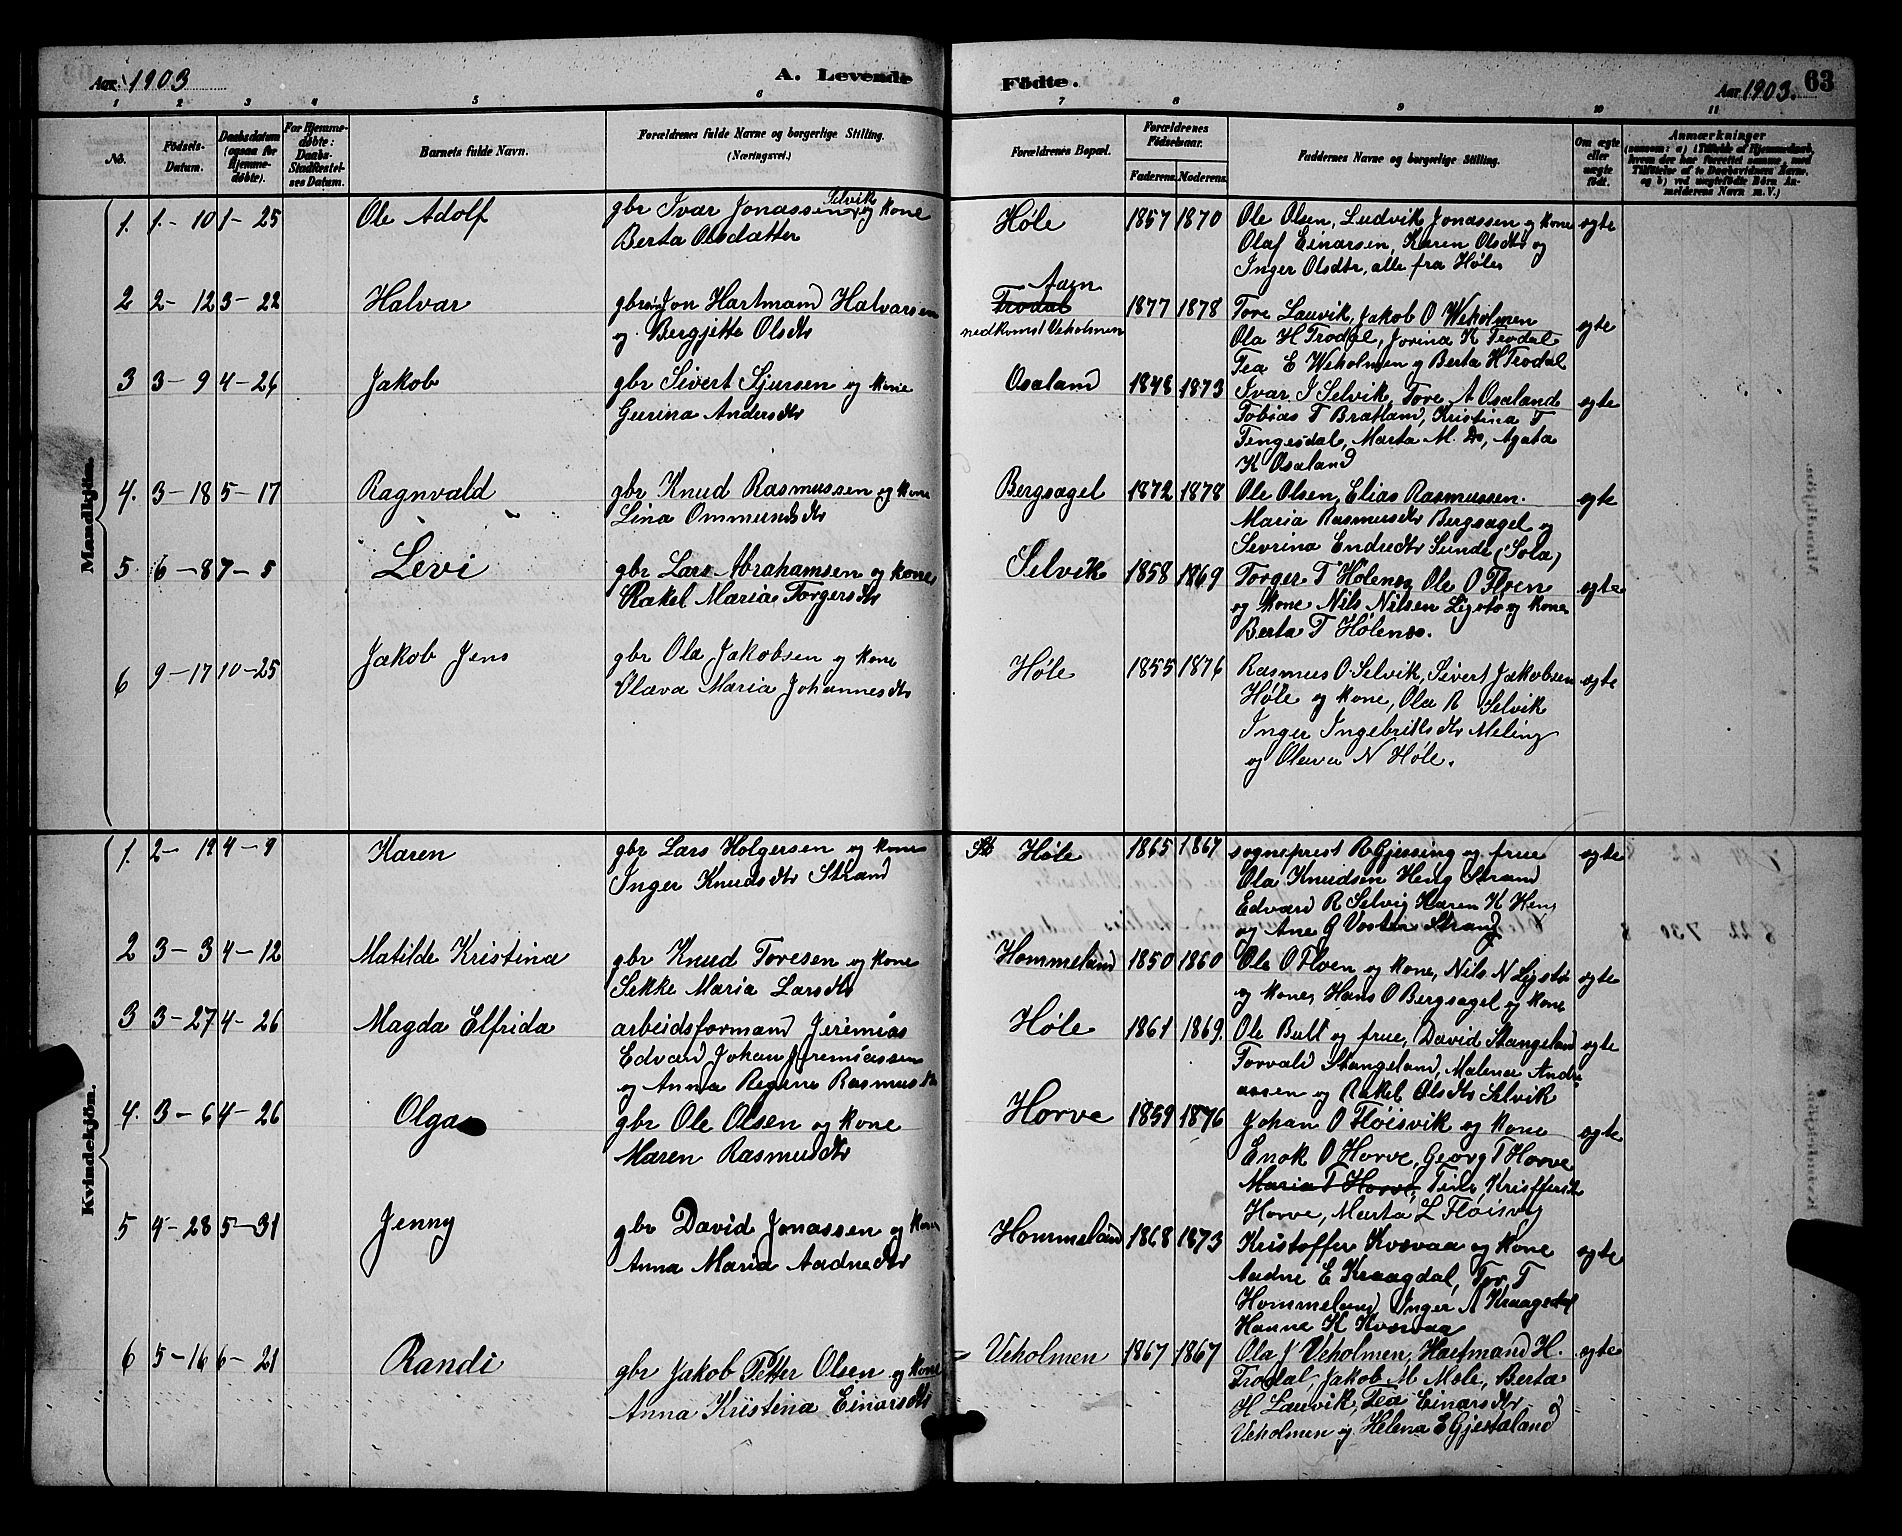 Aar 1903 A. Levende
Födte. Aar 1903. 63
1 2 3 4 5 6 7 8 9 10 11
No.
Födsels-Datum.
Daabsdatum (ogsaa for Hjemme-döbte).
For Hjemme-döbte: Daabs-Stadfæstel-ses Datum.
Barnets fulde Navn.
Forældrenes fulde Navne og borgerlige Stilling.
(Næringsvei.)
Forældrenes Bopæl.
Forældrenes Födselsaar.
Faderens. Moderens.
Faddernes Navne og borgerlige Stilling.
Om ægte eller uægte födt.
Anmærkninger
(saasom: a) i Tilfælde af Hjemmedaab, hvem der har forrettet samme, med Tilföielse af to Daabsvidners Navne, og b) ved uægtefödte Börn An-melderens Navn m. V.)
Mandkjön.
1. 1-10 1-25 Ole Adolf
gbr Ivar Jonassen Selvik og kone
Berta Olsdatter
Høle 1857 1870
Ole Olsen, Ludvik Jonassen og kone
Olaf Einarsen, Karen Olsdtr og
Inger Olsdtr, alle fra Høle
egte
2 2-12 3-22 Halvar
gbrsøn Jon Hartmand Halvarsen
og Bergjette Olsdtr
Aarn
Trodal
nedkomst Veholmen
1877 1878
Tore Lauvik, Jakob O Weholmen
Ola H Trodal, Jorina K Trodal
Tea E Weholmen og Berta H Trodal
egte
3 3-9 4-26 Jakob
gbr Sivert Sjursen og kone
Gurina Andersdtr
Osaland 1848 1873
Ivar J Selvik, Tore A Osaland
Tobias T Bratland, Kristina T
Tengesdal, Marta M. Do, Agata
K Osaland
egte
4. 3-18 5-17 Ragnvald
gbr Knud Rasmussen og kone
Lina Ommundsdtr
Bergsagel 1872 1878
Ole Olsen, Elias Rasmussen.
Maria Rasmusdtr Bergsagel og
Sevrina Endredtr Sunde (Sola)
egte
5 6-8 7-5 Levi
gbr Lars Abrahamsen og kone
Rakel Maria Torgersdtr
Selvik 1858 1869
Torger T Holenes, Ole O Floen
og kone Nils Nilsen Ligsto og kone
Berta T Hølenes.
egte
6 9-17 10-25 Jakob Jens
gbr Ola Jakobsen og kone
Olava Maria Johannesdtr
Høle 1855 1876
Rasmus O Selvik, Sivert Jakobsen
Høle og kone, Ola R Selvik
Inger Ingebriktsdtr Meling
og Olava N Høle.
egte
Kvindekjön.
1. 2-19 4-9 Karen
gbr Lars Holgersen og kone
Inger Knudsdtr Strand
Høle 1865 1867
sogneprest R Gjessing og frue
Ola Knudsen Heng Strand
Edvard R Selvig Karen K Heng
og Ane G Vostin Strand
egte
2 3-3 4-12 Matilde Kristina
gbr Knud Toresen og kone
Sekke Maria Larsdtr
Hommeland 1850 1860
Ole O Floen og kone, Nils N Ligsto
og kone, Hans O Bergsagel og kone
egte
3 3-27 4-26 Magda Elfrida
arbeidsformand Jeremias
Edvard Johan Jeremiassen
og Anna Regine Rasmusdtr
Høle 1861 1869.
Ole Bull og frue, David Stangeland
Torvald Stangeland, Malena Andre
assen og Rakel Olsdtr Selvik
egte
4. 3-6 4-26 Olga
gbr Ole Olsen og kone
Maren Rasmusdtr
Horve 1859 1876
Johan O Fløisvik og kone
Enok O Horve, Georg T Horve
Maria T Horve, Tina Kristfersdtr
Horve, Marta L Fløisvig
egte
5 4-28 5-31 Jenny
gbr David Jonassen og kone
Anna Maria Aadnedtr
Hommeland 1868 1873
Kristoffer Kvervaa og kone
Aadne E Kraagdal, Tor T
Hommeland Inger A Kraagedal
Hanne K Kvervaa
egte
6 5-16 6-21 Randi
gbr Jakob Petter Olsen og kone
Anna Kristina Einarsdtr
Veholmen 1867 1867
Ola J Veholmen, Hartmand H.
Trodal, Jakob M Mele, Berta
H Lauvik, Tea Einarsdtr
Veholmen og Helena E Gjestaland
egte